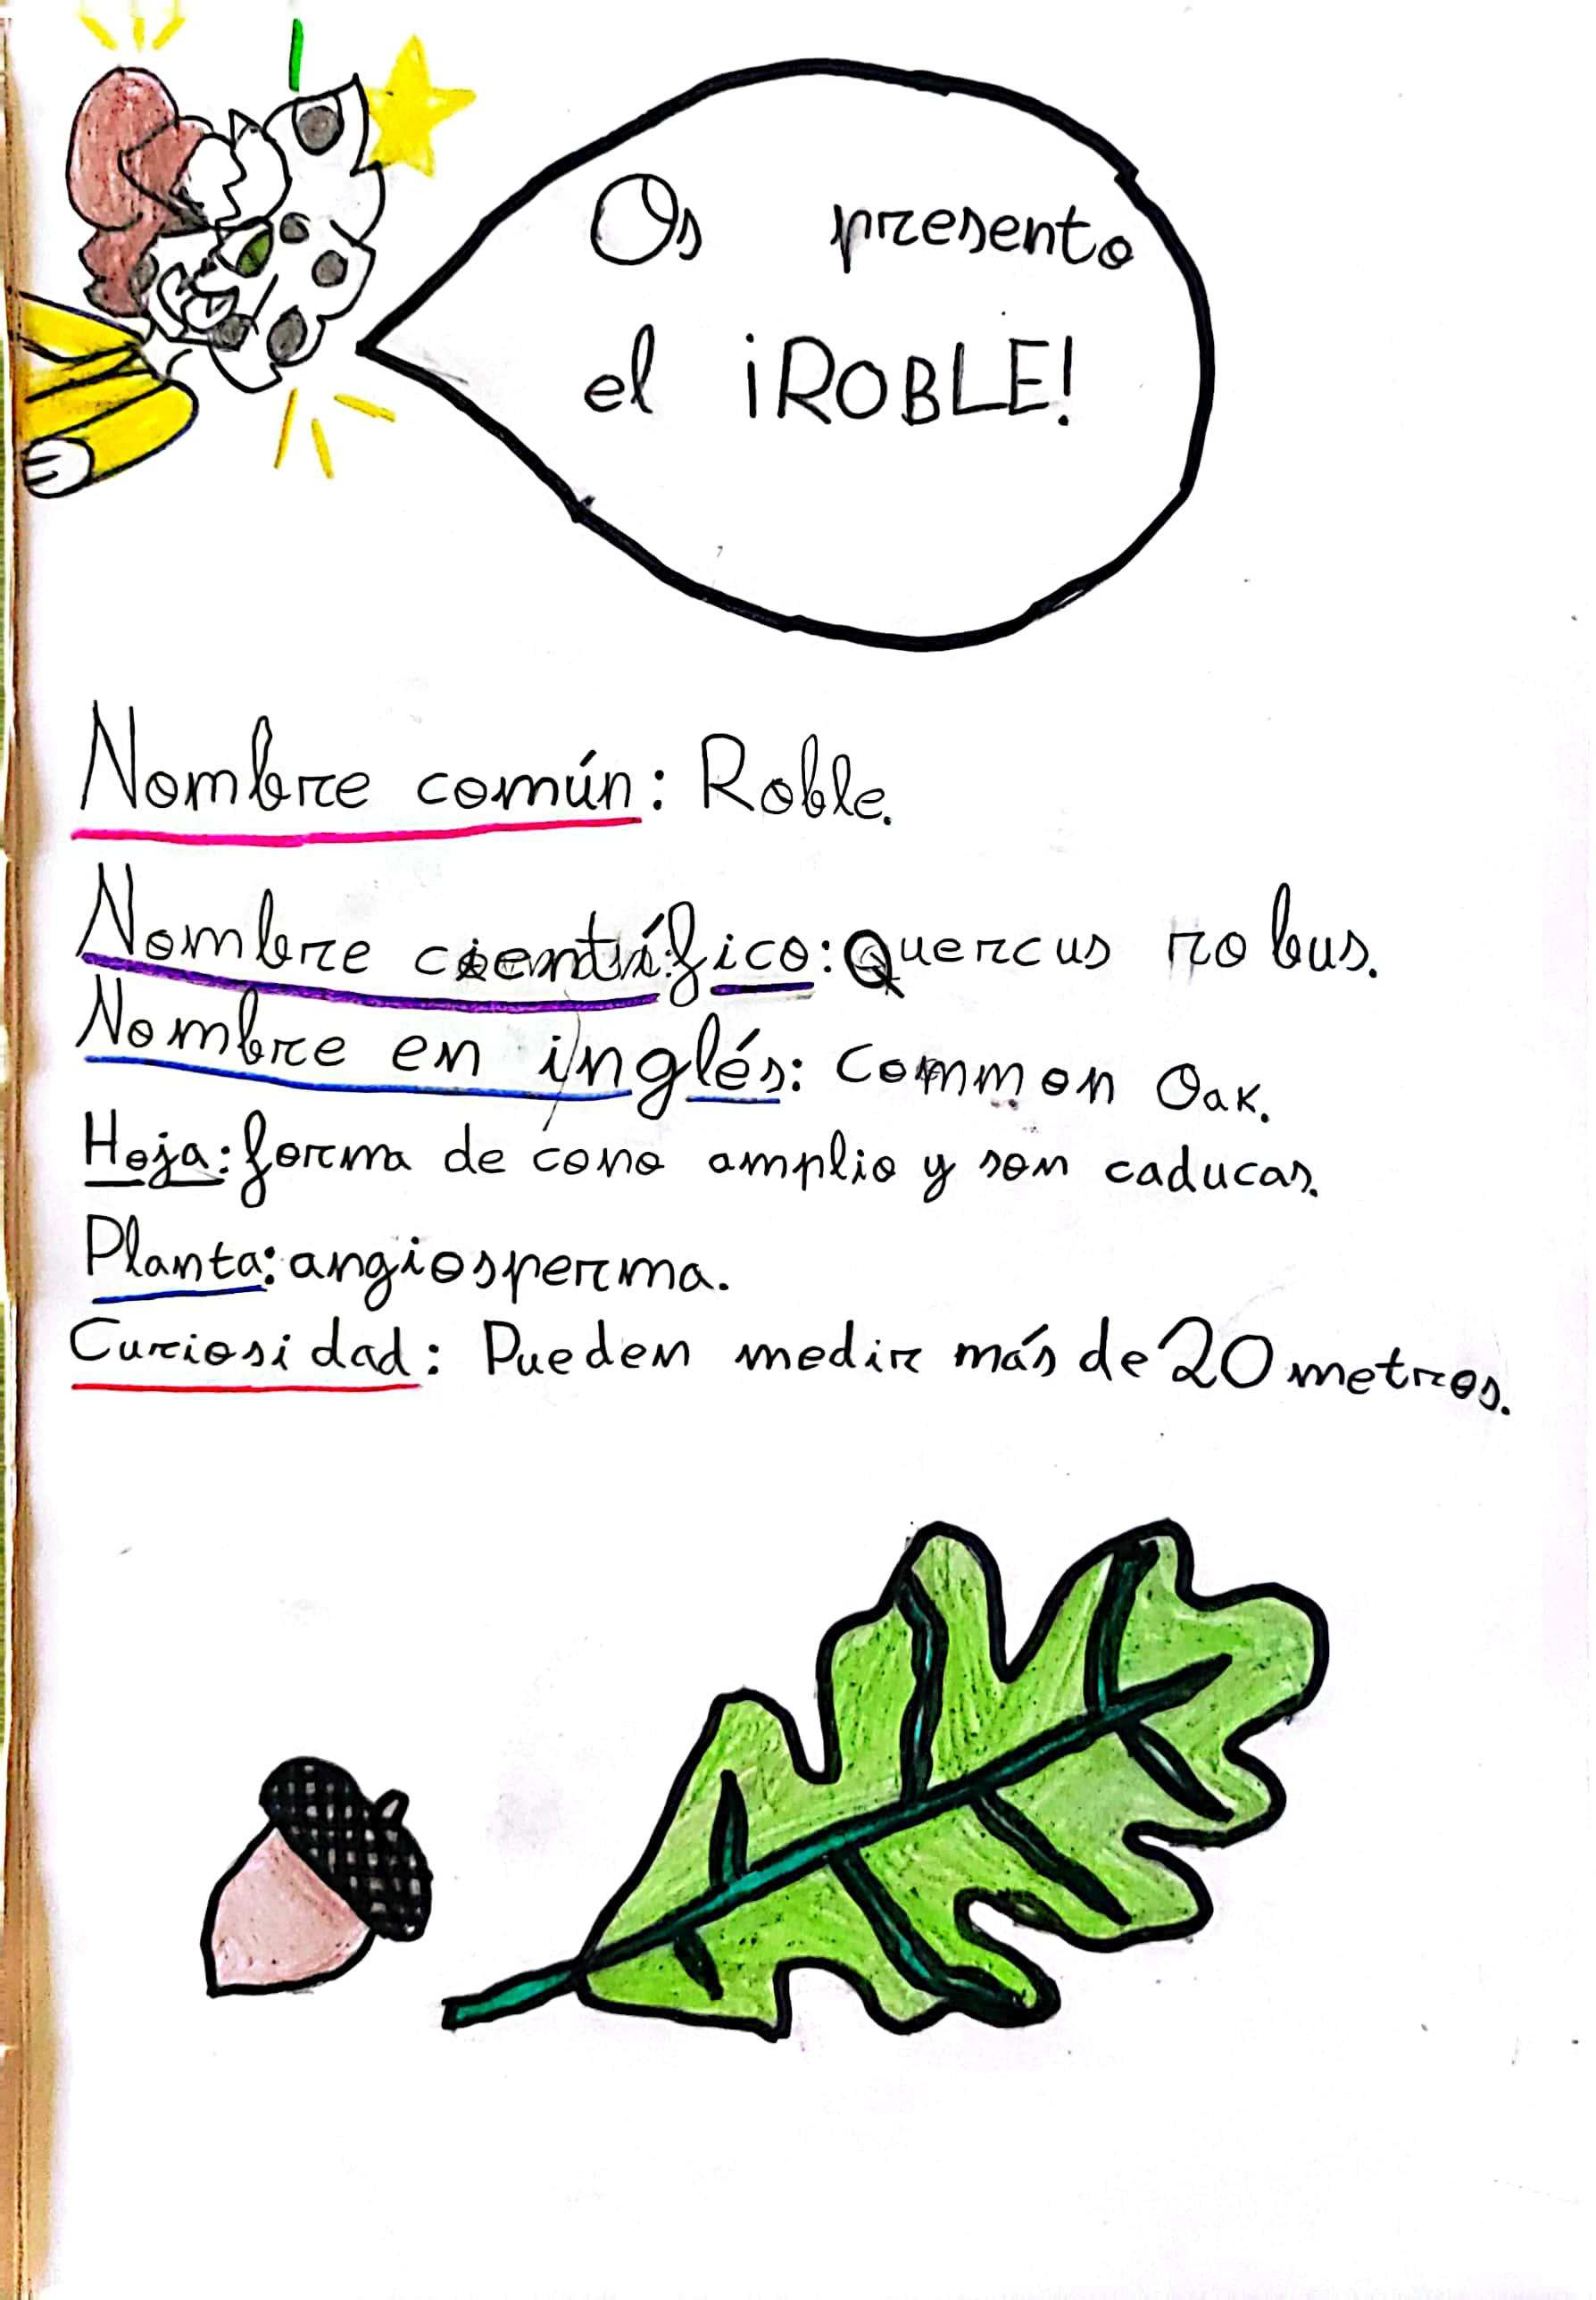 Os presento
el ¡ROBLE!
Nombre común: Roble.
Nombre científico: Quercus robus.
Nombre en inglés: common Oak.
Hoja: forma de cono amplio y son caducas.
Planta: angiosperma.
Curiosidad: Pueden medir más de 20 metros.